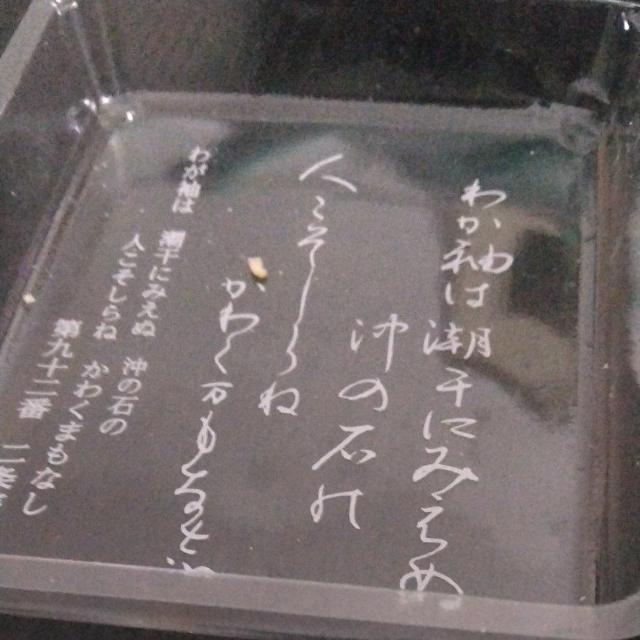 わか袖は潮干にみえぬ
沖の石の
人こそしらね
かわく万も
わが袖は 潮干にみえぬ 沖の石の
人こそしらね かわくまもなし
第九十二番 二